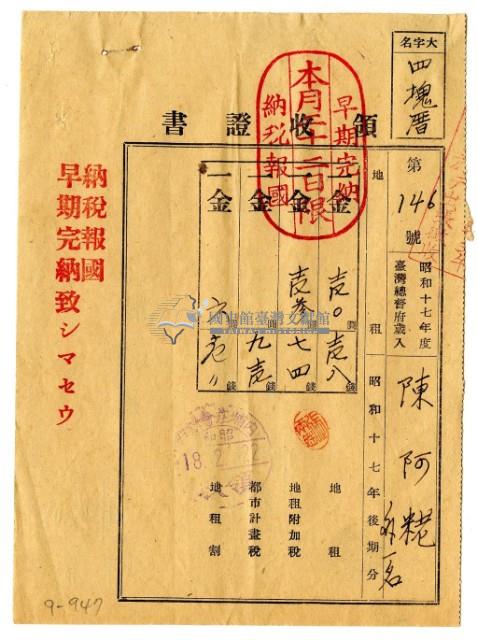 大字名
四塊厝
領收證書
本月二十二日限
早期完納
納稅報國
第146號
昭和十七年度
臺灣總督府歲入
陳阿粩
外一名
地租
昭和十七年後期分
一金
壹〇圓壹八錢
地租
一金
壹叁圓七四錢
地租附加稅
一金
圓九壹錢
都市計畫稅
一金
圓
錢
地租割
昭和
18.2.22
國史館臺灣文獻館
TAIWAN HISTORICA
納稅報國
早期完納致シマセウ
9-947